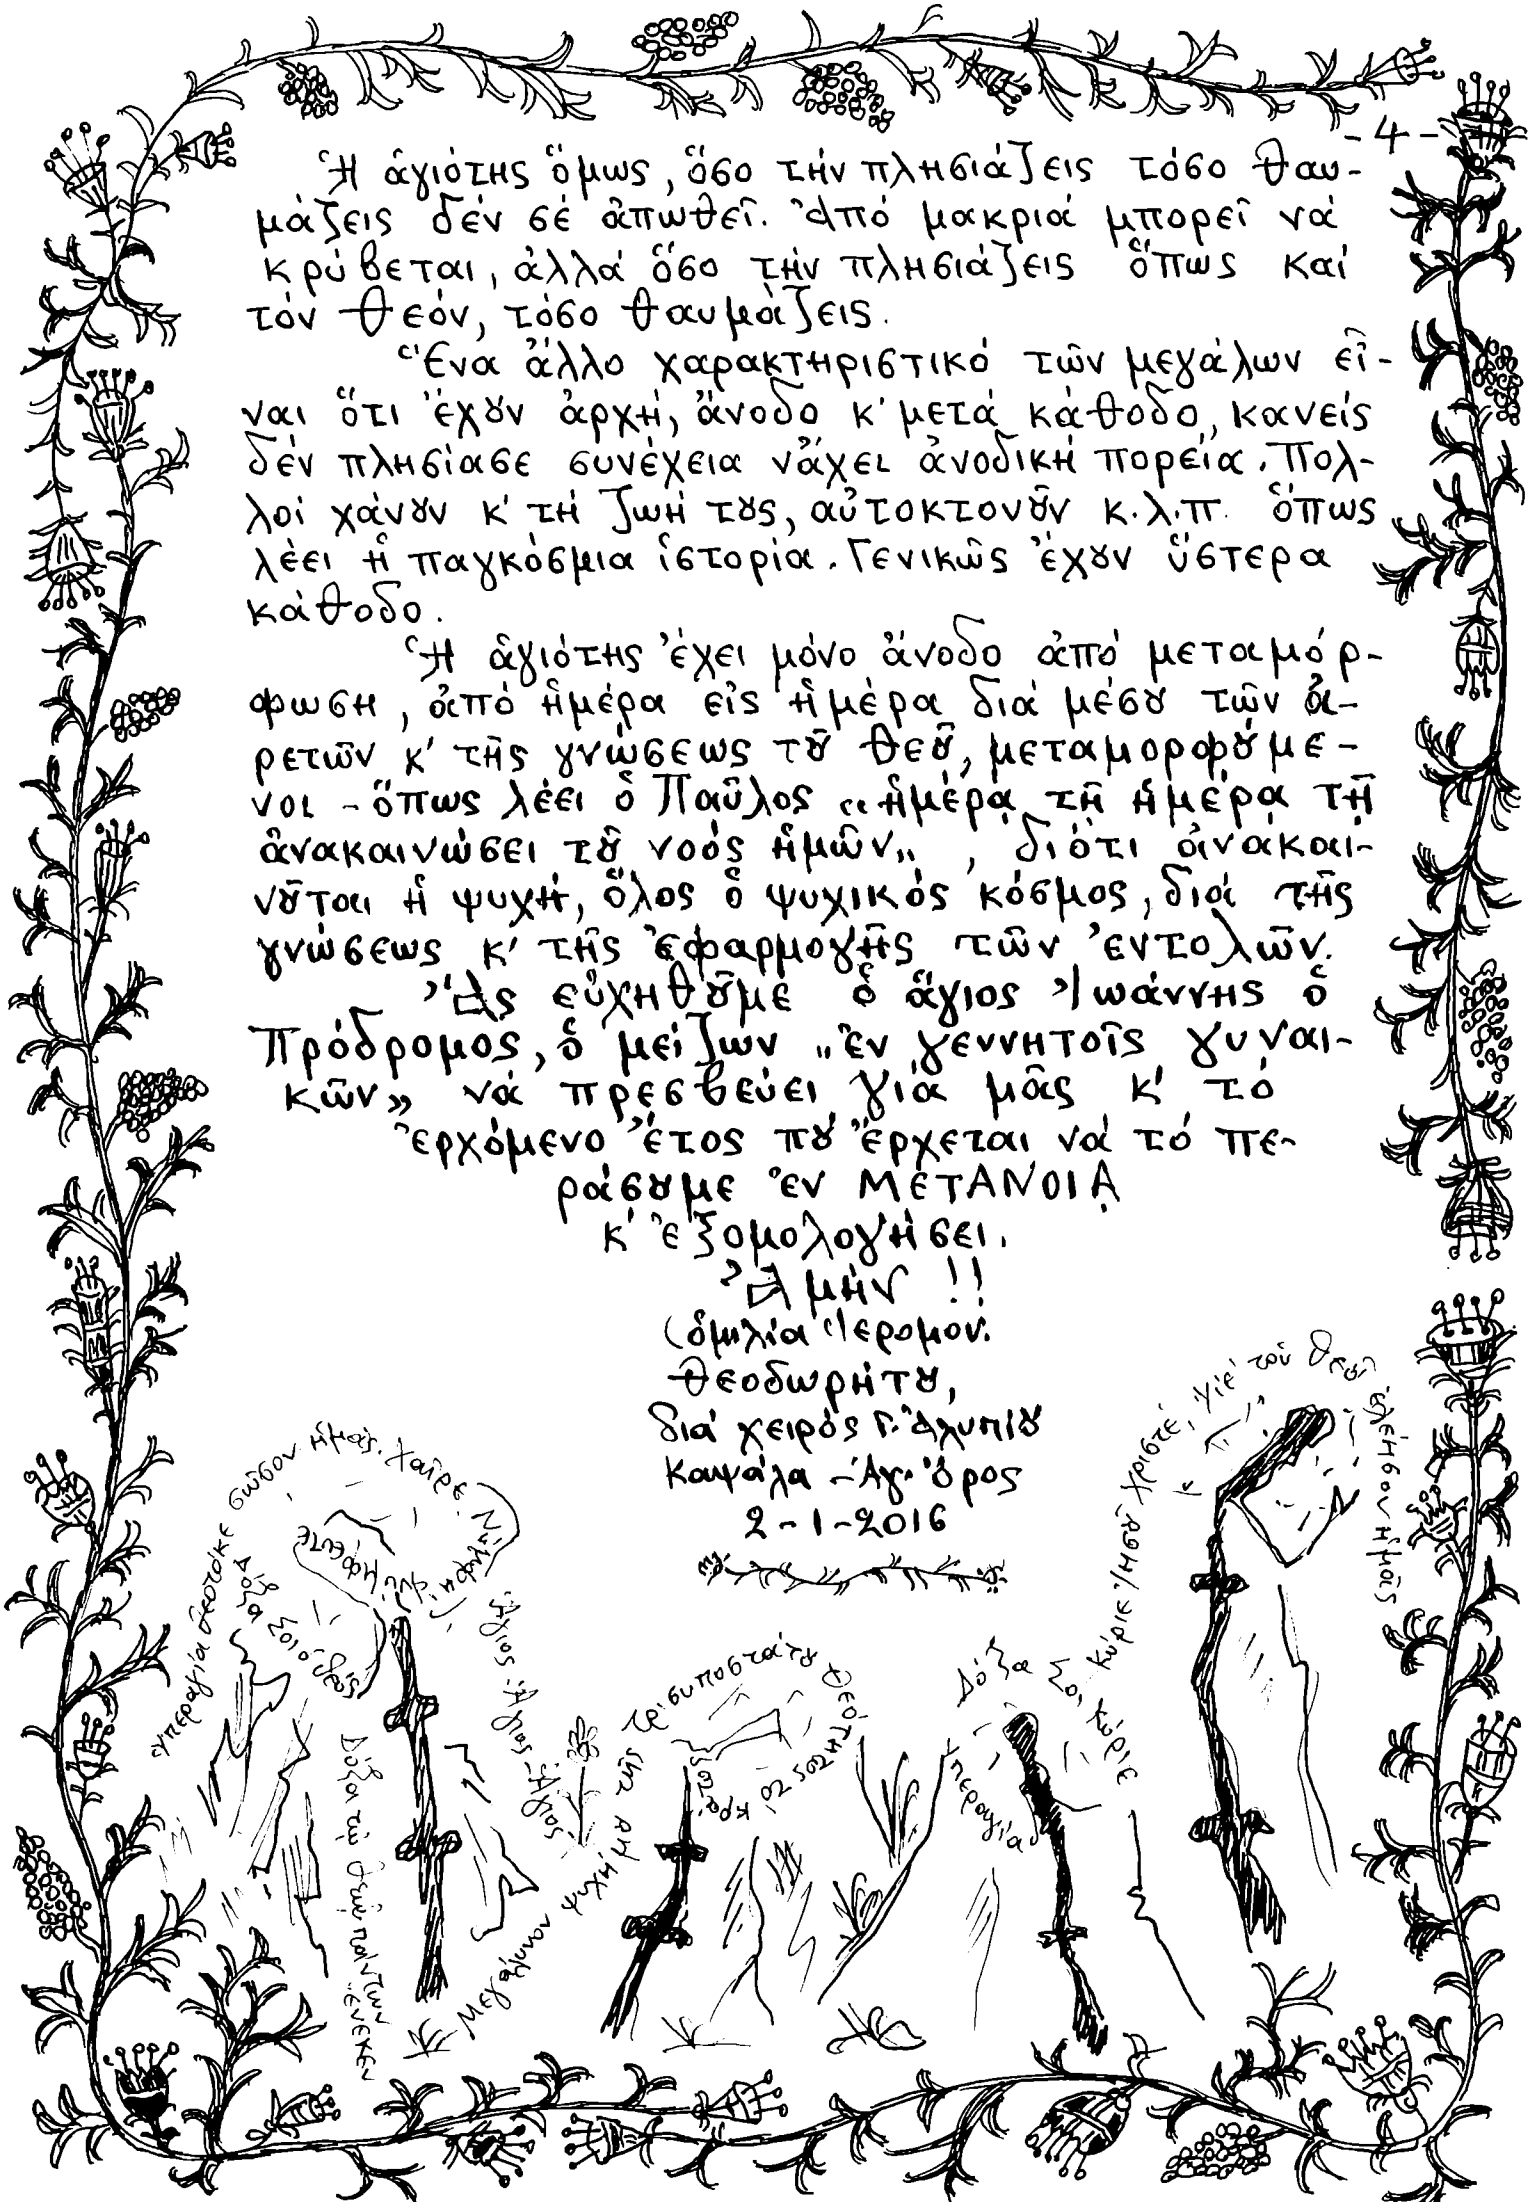 -4-
Ἡ ἁγιότης ὅμως, ὅσο τήν πλησιάζεις τόσο θαυ-
μάζεις δέν σέ ἀπωθεῖ. Ἀπό μακριά μπορεῖ νά
κρύβεται, ἀλλά ὅσο τήν πλησιάζεις ὅπως καί
τόν Θεόν, τόσο θαυμάζεις.
Ἕνα ἄλλο χαρακτηριστικό τῶν μεγάλων εἶ-
ναι ὅτι ἔχȣν ἀρχή, ἄνοδο κ' μετά κάθοδο, κανείς
δέν πλησίασε συνέχεια νἄχει ἀνοδική πορεία. Πολ-
λοί χάνȣν κ' τή ζωή τȣς, αὐτοκτονȣ͂ν κ.λ.π. ὅπως
λέει ἡ παγκόσμια ἱστορία. Γενικῶς ἔχȣν ὕστερα
κάθοδο.
Ἡ ἁγιότης ἔχει μόνο ἄνοδο ἀπό μεταμόρ-
φωση, ἀπό ἡμέρα εἰς ἡμέρα διά μέσȣ τῶν ἀ-
ρετῶν κ' τῆς γνώσεως τȣ͂ Θεȣ͂, μεταμορφȣ́με-
νοι - ὅπως λέει ὁ Παῦλος „ἡμέρᾳ τῇ ἡμέρᾳ τῇ
ἀνακαινώσει τȣ͂ νοός ἡμῶν„ , διότι ἀνακαι-
νȣ͂ται ἡ ψυχή, ὅλος ὁ ψυχικός κόσμος, διά τῆς
γνώσεως κ' τῆς ἐφαρμογῆς τῶν ἐντολῶν.
Ἄς εὐχηθȣ͂με ὁ ἅγιος Ἰωάννης ὁ
Πρόδρομος, ὁ μείζων „ἐν γεννητοῖς γυναι-
κῶν» νά πρεσβεύει γιά μᾶς κ' τό
ἐρχόμενο ἔτος πȣ́ ἔρχεται νά τό πε-
ράσȣμε ἐν ΜΕΤΑΝΟΙᾼ
κ' ἐξομολογήσει.
Ἀμήν !!
(ὁμιλία Ἱερομον.
Θεοδωρήτȣ,
διά χειρός Γ. Ἀλυπίȣ
Καψάλα - Ἁγ. Ὄρος
2-1-2016
Ὑπεραγία Θεοτόκε σῶσον ἡμᾶς. Χαῖρε Νύμφη Ἀνύμφευτε
Δόξα Σοι
Δόξα τῷ Θεῷ πάντων ἕνεκεν
Ἅγιος Ἅγιος Ἅγιος
Μεγάλυνον ψυχή μȣ τῆς Τρισυποστάτȣ Θεότητος τό κράτος
Δόξα Σοι Κύριε
Ὑπεραγία
Κύριε Ἰησȣ͂ Χριστέ, Υἱέ τοῦ Θεοῦ ἐλέησον ἡμᾶς